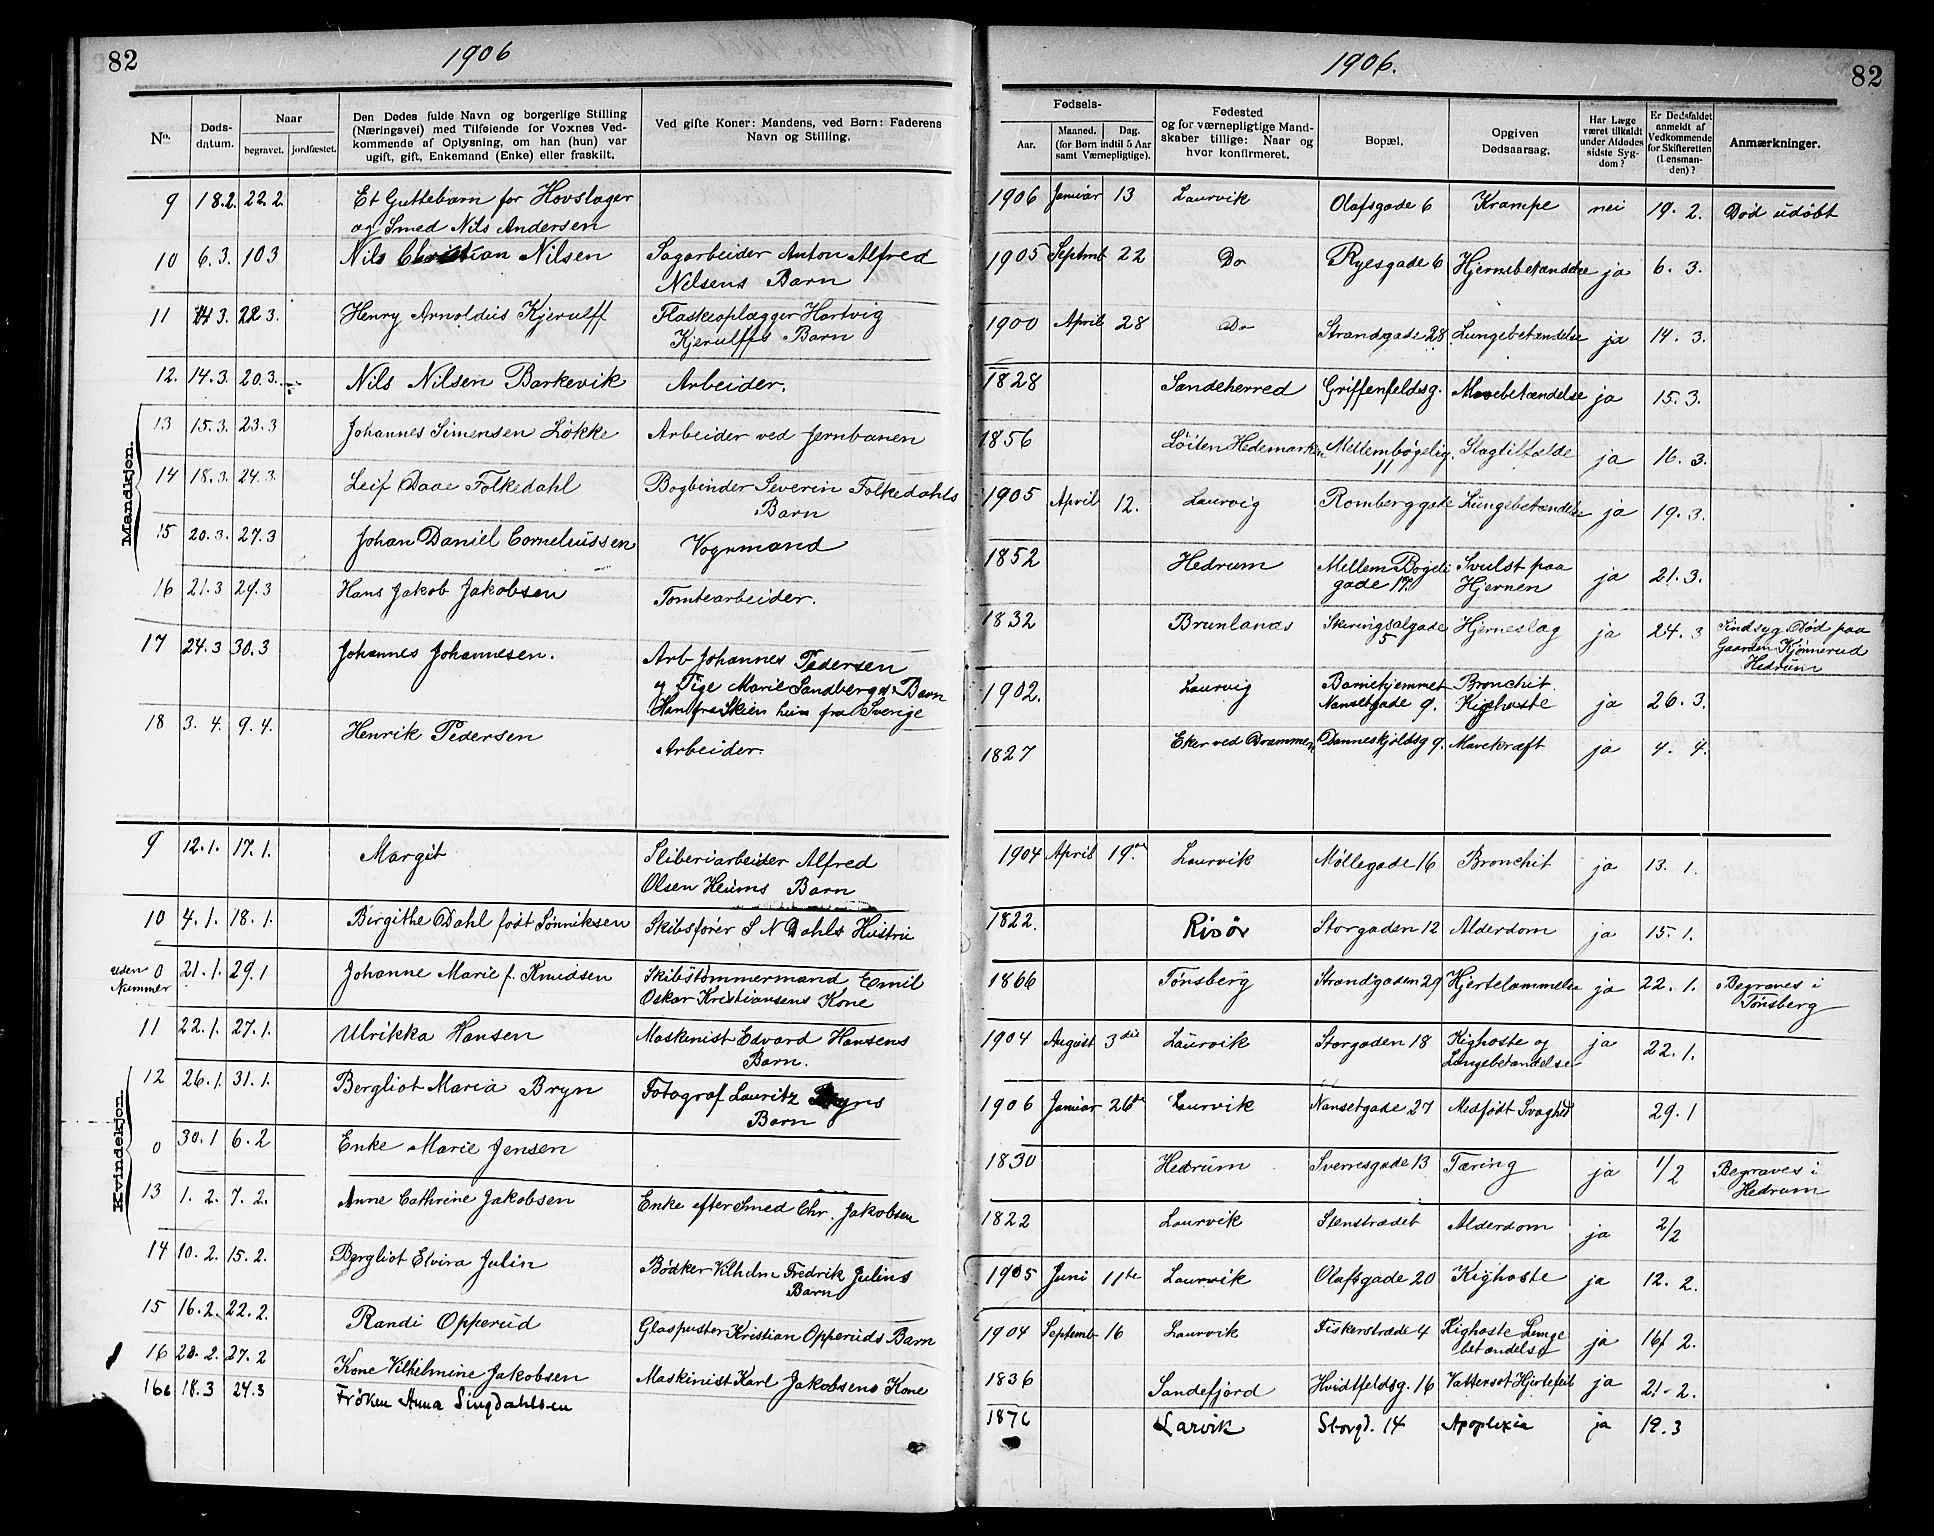 82
1906
No.
Døds-
datum.
Naar
begravet.
jordfæstet.
Den Dødes fulde Navn og borgerlige Stilling
(Næringsvei) med Tilføiende for Voxnes Ved-
kommende af Oplysning, om han (hun) var
ugift, gift, Enkemand (Enke) eller fraskilt.
Ved gifte Koner: Mandens, ved Børn: Faderens
Navn og Stilling.
Mandkjøn.
9 18.2. 22.2. Et Guttebarn for Hovslager
og Smed Nils Andersen
10 6.3. 10 3 Nils Christian Nilsen Sagarbeider Anton Alfred
Nilsens Barn
11 14 3. 22 3. Henry Arnoldus Kjerulff Flaskeoplægger Hartvig
Kjerulffs Barn
12. 14.3. 20.3. Nils Nilsen Barkevik Arbeider.
13 15.3. 23.3 Johannes Simensen Løkke Arbeider ved Jernbanen
14 18.3. 24.3. Leif Daae Folkedahl Bogbinder Severin Folkedahls
Barn
15 20.3. 27.3 Johan Daniel Corneliussen Vognmand
16 21.3 29.3 Hans Jakob Jakobsen Tomtearbeider.
17 24.3 30.3 Johannes Johannesen. Arb Johannes Pedersen
og Pige Marie Sandbergs Barn
Han fra Skien hun fra Sverige
18 3. 4. 9. 4. Henrik Pedersen Arbeider.
Kvindekjøn.
9 12.1. 17.1. Margit Sliberiarbeider Alfred
Olsen Heums Barn
10 4.1. 18.1. Birgithe Dahl født Sønniksen Skibsfører S N Dahls Hustru
uden
Nummer
0 21.1. 29.1 Johanne Marie f. Knudsen Skibstømmermand Emil
Oskar Kristiansens Kone
11 22.1. 27.1. Ulrikka Hansen Maskinist Edvard Hansens
Barn.
12 26.1. 31.1. Bergliot Maria Bryn Fotograf Lauritz Bryns
Barn
0 30.1 6.2 Enke Marie Jensen
13 1. 2. 7. 2. Anne Cathrine Jakobsen Enke efter Smed Chr. Jakobsen
14 10.2. 15.2. Bergliot Elvira Julin Bødker Vilhelm Fredrik Julins
Barn
15 16.2. 22.2. Randi Opperud Glaspuster Kristian Opperuds Barn
16 20.2. 27.2 Kone Vilhelmine Jakobsen Maskinist Karl Jakobsens Kone
16b 18.3 24.3 Frøken Anna Singdahlsen
1906.
82
Fødsels-
Aar.
Maaned. Dag.
(for Børn indtil 5 Aar
samt Værnepligtige).
Fødested
og for værnepligtige Mand-
skaber tillige: Naar og
hvor konfirmeret.
Bopæl.
Opgiven
Dødsaarsag.
Har Læge
været tilkaldt
under Afdødes
sidste Syg-
dom?
Er Dødsfaldet
anmeldt af
Vedkommende
for Skifteretten
(Lensman-
den)?
Anmærkninger.
1906 Januar 13 Laurvik Olafsgade 6 Krampe nei 19. 2. Død udøbt
1905 Septmb 22 Do Ryesgade 6 Hjernebetændelse ja 6. 3.
1900 April 28 Do Strandgade 28 Lungebetændelse ja 14. 3.
1828 Sandeherred Griffenfeldsg. Mavebetændelse ja 15. 3.
1856 Løiten Hedemarken Mellembøgelig. Slagtilfælde ja 16. 3.
11
1905 April 12. Laurvig Romberggade Lungebetændelse ja 19. 3.
1852 Hedrum Mellem Bøgeli Svulst paa ja 21. 3.
gade 17. Hjernen
1832 Brunlanes Skiringsalgade Hjerneslag ja 24. 3 Sindsyg Død paa
5 Gaarden Kjønnerud
Hedrum
1902. Laurvig Barnehjemmet Bronchit. ja 26. 3.
Nansetgade 9. Kighoste
1827 Eker ved Drammen Danneskjoldsg 9. Mavekræft ja 4. 4.
1904 April 19de Laurvik Møllegade 16 Bronchit ja 13. 1.
1822. Risør Storgaden 12 Alderdom ja 15. 1.
1866 Tønsberg Strandgaden 29 Hjertelammelse ja 22. 1. Begraves i
Tønsberg
1904 August 3die Laurvik Storgaden 18 Kighoste og ja 22. 1.
Lungebetændelse
1906 Januar 26de Laurvik Nansetgade 27 Medfødt Svaghed 29. 1
1830 Hedrum Sverresgade 13 Tæring ja 1/2 Begraves i
Hedrum
1822 Laurvik Stenstrædet Alderdom ja 2/2
1905 Juni 11te Laurvik Olafsgade 20 Kighoste ja 12. 2.
1904 Septemb 16 Laurvik Fiskerstræde 4 Kighoste Lunge ja 16/ 2.
betændelse
1836 Sandefjord Hvidtfeldsg. 16 Vattersot Hjertefeil ja 21. 2.
1876 Larvik Storgd. 14 Apoplexia ja 19. 3